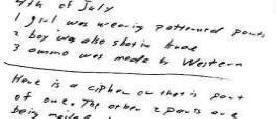 4th of July
1 girl was wearing patterned pants
2 boy was also shot in knee
3 ammo was made by Western
Here is a cipher or that is part
of one. The other 2 parts are
being mailed